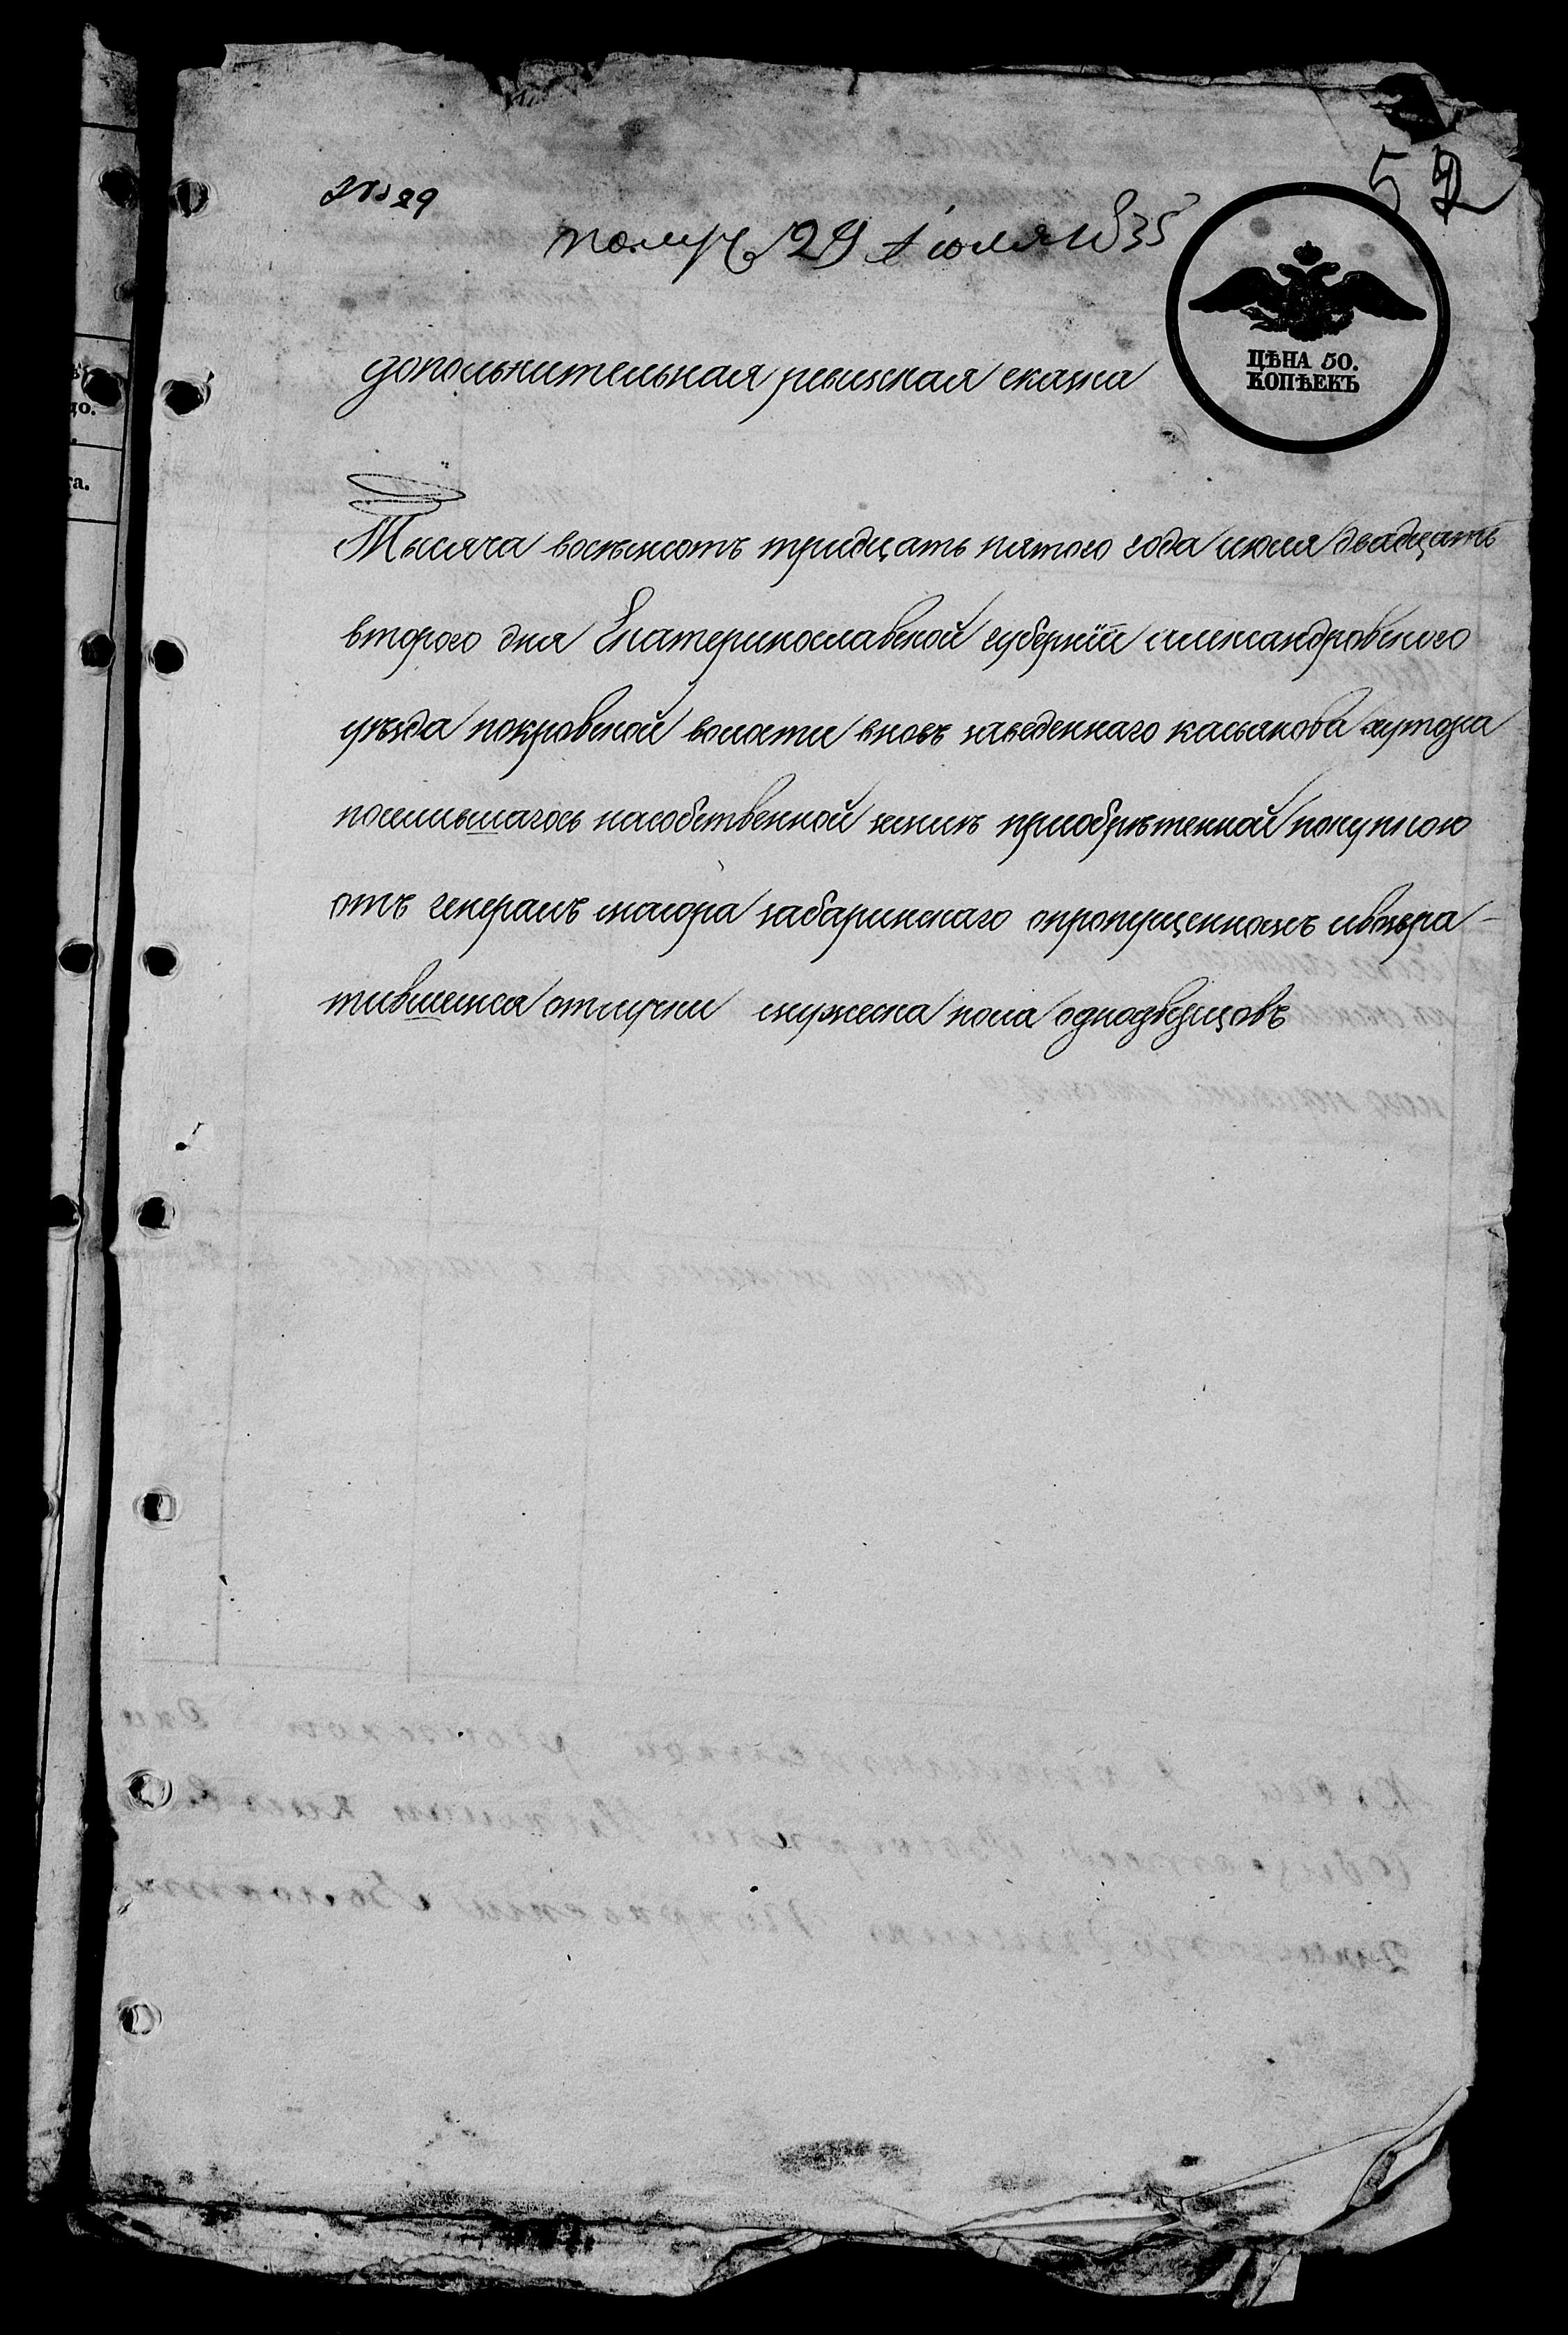 № 29
52
получ 29 Июля 1835
ЦѢНА 50.
КОПѢЕКЪ
дополнительная ревизская сказка
Тысяча восемьсотъ тридцать пятого года июля двадцать
второго дня Екатеринославской губерніи александровского
уѣзда покровской волости вновь заведеннаго касьянова хутора
поселившагось насобственной земли приобрѣтенной покупкою
отъ генералъ маиора забаринскаго опропущенномъ ивозвра-
тившемся отлучки мужеска пола однодворцовъ
до.
га.